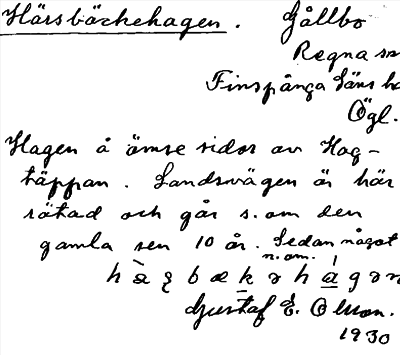 Härsbäckehagen. Gållbo
Regna sn
Finspånga läns ha
Ögl.
Hagen å ömse sidor av Hag-
täppan. Landsvägen är här
rätad och går s. om den
gamla sen 10 år. Sedan något
n. om.
Gustaf E. Olsson.
1930